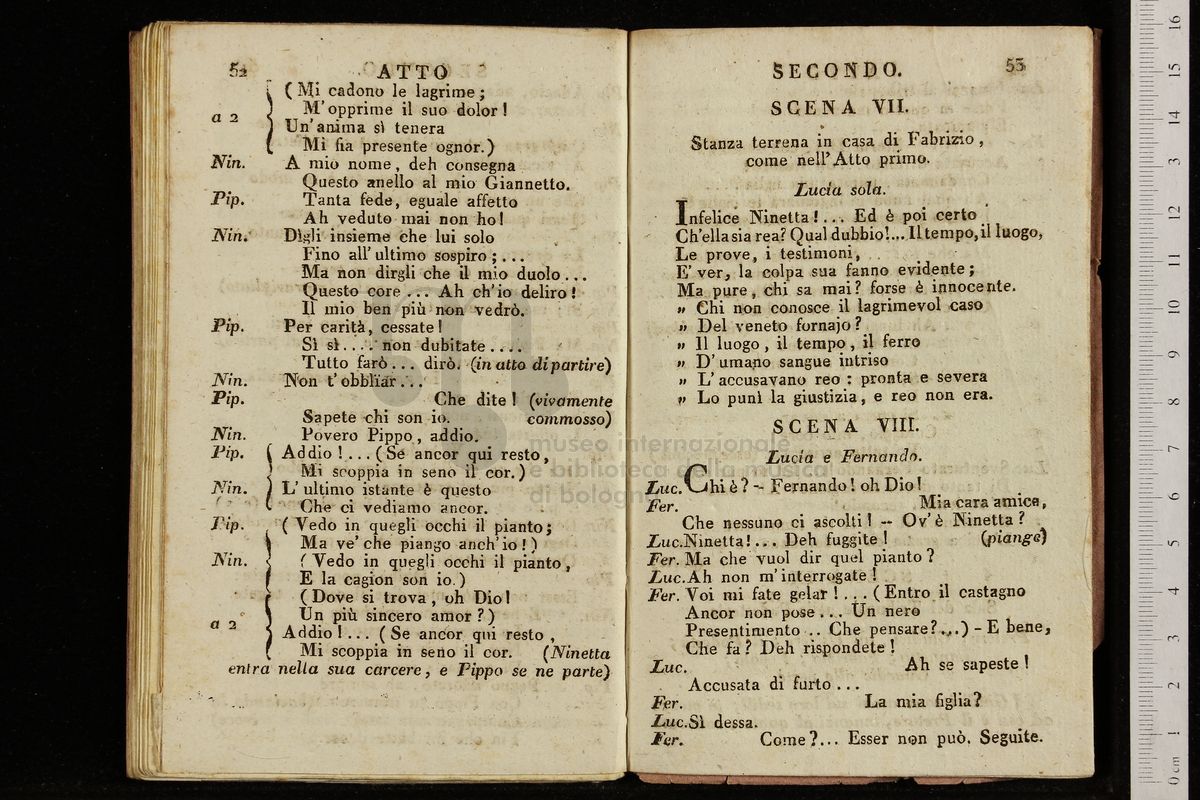 52
ATTO
(Mi cadono le lagrime;
M'opprime il suo dolor!
a 2
Un'anima sì tenera
Mi fia presente ognor.)
Nin. A mio nome, deh consegna
Questo anello al mio Giannetto.
Pip. Tanta fede, eguale affetto
Ah veduto mai non ho!
Nin. Digli insieme che lui solo
Fino all'ultimo sospiro;...
Ma non dirgli che il mio duolo...
Questo core... Ah ch'io deliro!
Il mio ben più non vedrò.
Pip. Per carità, cessate!
Sì sì.... non dubitate....
Tutto farò... dirò. (in atto di partire)
Nin. Non t'obblìar...
Pip. Che dite! (vivamente
Sapete chi son io. commosso)
Nin. Povero Pippo, addio.
Pip. Addio!...(Se ancor qui resto,
Mi scoppia in seno il cor.)
Nin. L'ultimo istante è questo
Che ci vediamo ancor.
Pip. (Vedo in quegli occhi il pianto;
Ma ve' che piango anch'io!)
Nin. (Vedo in quegli occhi il pianto,
E la cagion son io.)
(Dove si trova, oh Dio!
Un più sincero amor?)
a 2
Addio!... (Se ancor qui resto,
Mi scoppia in seno il cor. (Ninetta
entra nella sua carcere, e Pippo se ne parte)
SECONDO.
53
SCENA VII.
Stanza terrena in casa di Fabrizio,
come nell'Atto primo.
Lucia sola.
Infelice Ninetta!... Ed è poi certo
Ch'ella sia rea? Qual dubbio!... Il tempo, il luogo,
Le prove, i testimoni,
E' ver, la colpa sua fanno evidente;
Ma pure, chi sa mai? forse è innocente.
„ Chi non conosce il lagrimevol caso
„ Del veneto fornajo?
„ Il luogo, il tempo, il ferro
„ D'umano sangue intriso
„ L'accusavano reo: pronta e severa
„ Lo punì la giustizia, e reo non era.
SCENA VIII.
Lucia e Fernando.
Luc. Chi è? -- Fernando! oh Dio!
Fer. Mia cara amica,
Che nessuno ci ascolti! -- Ov'è Ninetta?
Luc. Ninetta!... Deh fuggite! (piange)
Fer. Ma che vuol dir quel pianto?
Luc. Ah non m'interrogate!
Fer. Voi mi fate gelar!...(Entro il castagno
Ancor non pose... Un nero
Presentimento .. Che pensare?...) - E bene,
Che fa? Deh rispondete!
Luc. Ah se sapeste!
Accusata di furto...
Fer. La mia figlia?
Luc. Sì dessa.
Fer. Come?... Esser non può. Seguite.
museo internazionale
e biblioteca della musica
di bologna
0 cm 1 2 3 4 5 6 7 8 9 10 11 12 13 14 15 16